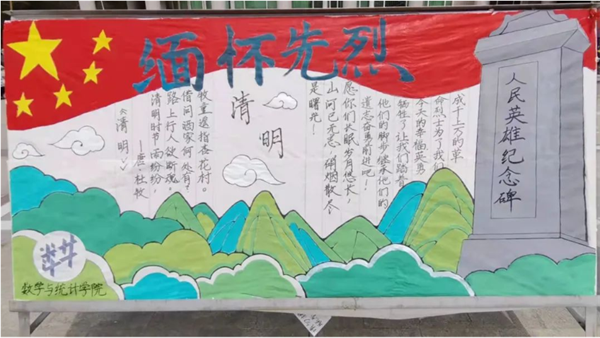 缅怀先烈
人民英雄纪念碑
成千上万的革
命烈士为了我们
今天的幸福英勇
牺牲了让我们踏着
他们的脚步继承他们的
遗志奋勇前进吧!
愿你们长眠岁月悠长!
山河已无恙 硝烟散尽
是曙光!
清明
《清明》
——唐·杜牧
清明时节雨纷纷
路上行人欲断魂。
借问酒家何处有?
牧童遥指杏花村。
数学与统计学院